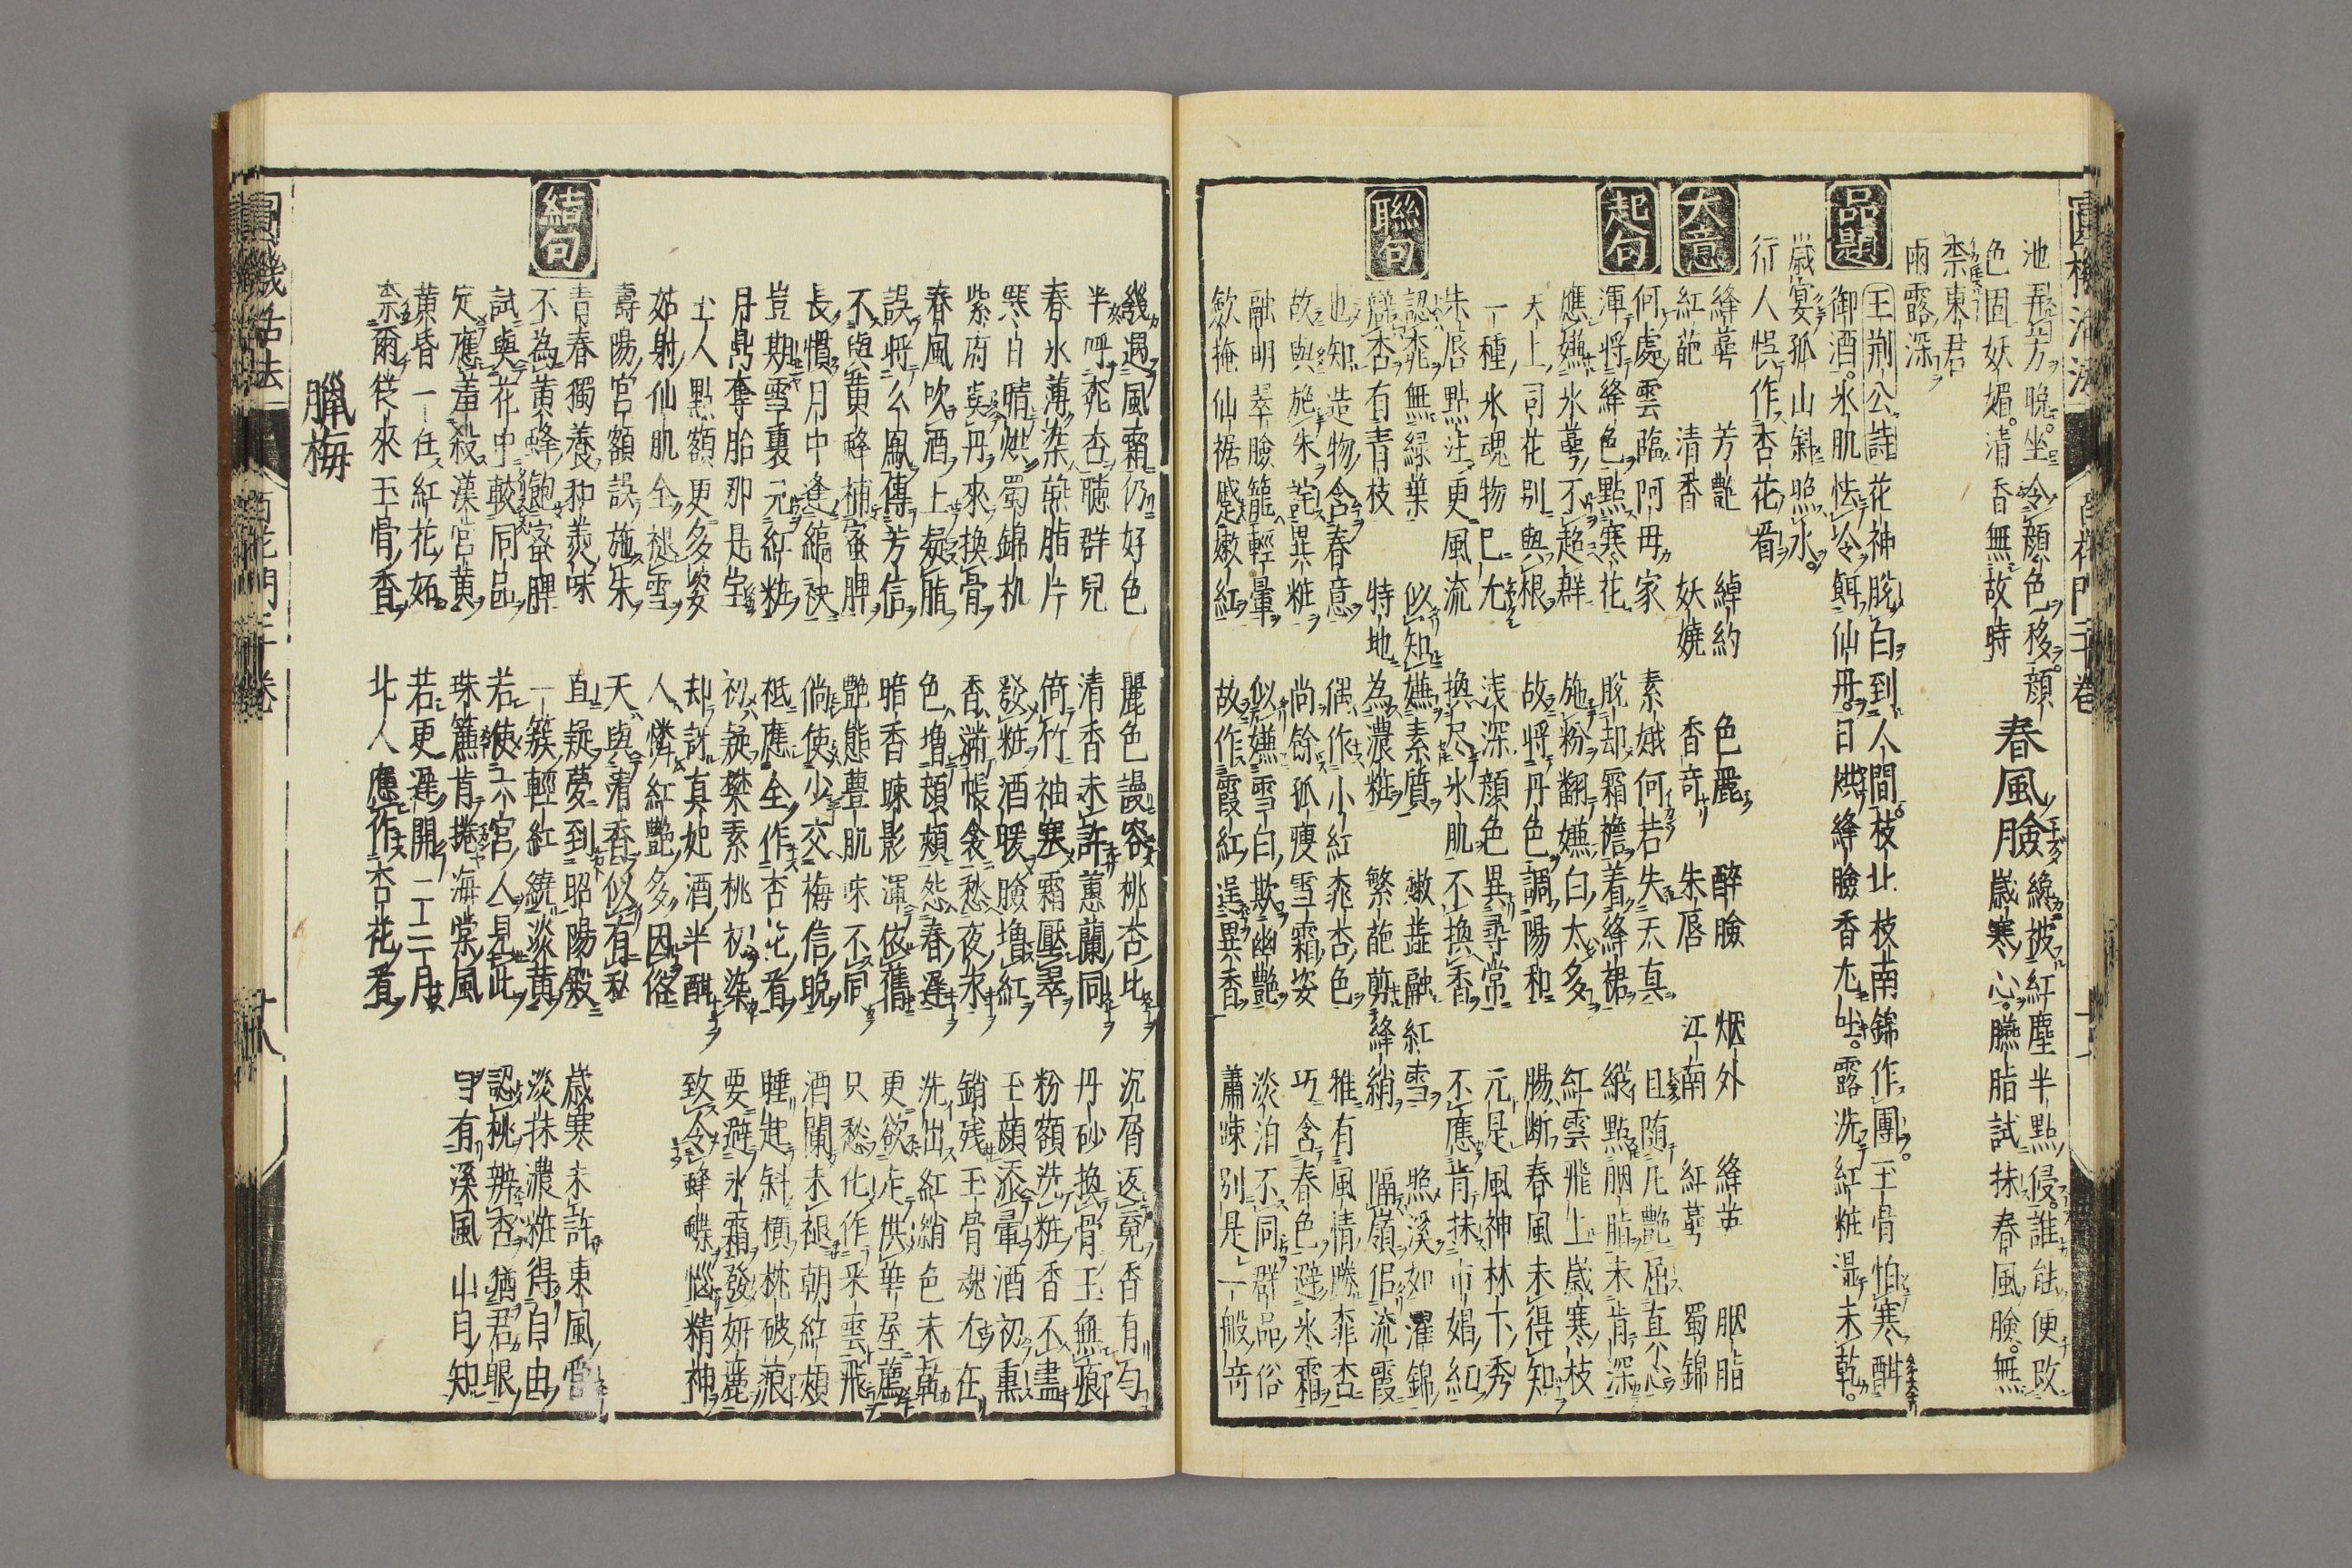 池 弄芳晩坐令顔色移顔 春風臉 纔披紅塵半點侵誰能便改
色固妖媚清香無故時 歳寒心臙脂試抹春風臉無
柰東君
雨露深
品題
王荊公詩 花神脱白到人間枝北枝南錦作團玉骨怕寒酣
御酒氷肌怯冷餌仙丹日烘絳臉香尤吐露洗紅粧湿未乾
歳宴孤山斜照水
行人悞作杏花看
大意
絳萼 芳艶 綽約 色麗 醉臉 烟外 絳苗 胭脂
紅葩 清香 妖嬈 香奇 朱唇 江南 紅萼 蜀錦
起句
何處雲臨阿母家 素娥何若失天真 且随凡艶屈真心
渾將絳色點寒花 脱却霜襜着絳裙 縱點胭脂未肯深
應嫌氷萼不超群 施粉翻嫌白太多 紅雲飛上歳寒枝
天上司花別與根 故將丹色調陽和 腸断春風未得知
一種氷魂物已尤 浅深顔色異尋常 元是風神林下秀
朱唇點注更風流 換尽氷肌不換香 不應肯抹市娼紅
聯句
認桃無緑葉 似知嫌素質 嫩蘂融紅雪 照溪如濯錦
辯杏有青枝 特地為濃粧 繁葩剪絳綃 隔嶺佀流霞
也知造物含春意 偶作小紅桃杏色 雅有風情勝桃杏
故與施朱詫異粧 尚餘孤痩雪霜姿 巧含春色避氷霜
融明翠臉籠輕暈 似嫌雪白欺幽艶 淡泊不同群品俗
歛掩仙裾蹙嫩紅 故作霞紅逞異香 蕭疎別是一般奇
幾遇風霜仍好色 麗色謾容桃杏比 沉屑返䰟香有匀
半呼桃杏聴群兒 清香未許蕙蘭同 丹砂換骨玉無瘢
春氷薄染臙脂片 倚竹袖寒霜壓翠 粉額洗粧香不盡
寒日晴烘蜀錦机 發粧酒暖臉増紅 玉顔添暈酒初熏
紫府丹來換骨 香滿帳衾愁夜永 銷残玉骨魂尢在
春風吹酒上凝脂 色増頳頰怨春遅 洗出紅綃色未乾
誤將公鳳傳芳信 暗香疎影渾依舊 更欲走供華屋薦
不與黄蜂補蜜脾 艶態豊肌味不同 只愁化作采雲飛
長慣月中逢縞袂 倘使少交梅信晩 酒闌未褪朝紅頰
豈期雪裏元紅粧 柢應全作杏花看 睡起斜横桃破痕
月鼎奪胎那是宝 初疑樊素桃初染 要避氷霜發妍麗
玉人點額更多姿 却訝真妃酒半酣 致令蜂蝶惱精神
姑射仙肌全褪雪 人憐紅艶多因俗
壽陽宮額誤施朱 天與清香似有私
結句
青春獨養和羮味 直疑夢到昭陽殿 歳寒未許東風管
不為黄蜂飽蜜脾 一簇輕紅鐃淡黄 淡抹濃粧得自由
試與花中較同品 若使六宮人見此 認桃辨杏猶君眼
定應羞殺漢宮黄 珠簾肯捲海棠風 只有溪風山月知
黄昏一任紅花妬 若更遅開二三月
柰爾従來玉骨香 北人應作杏花看
臘梅
圓機活法
百花門二十卷
十八